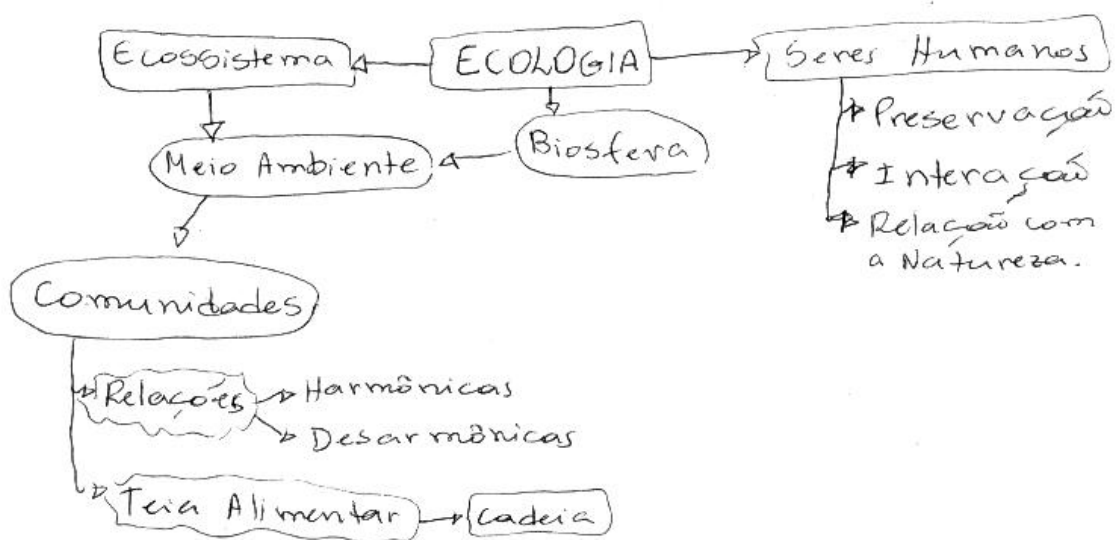 Ecossistema
ECOLOGIA
Seres Humanos
Preservação
Interação
Relação com
a Natureza.
Biosfera
Meio Ambiente
Comunidades
Relações
Harmônicas
Desarmônicas
Teia Alimentar
Cadeia